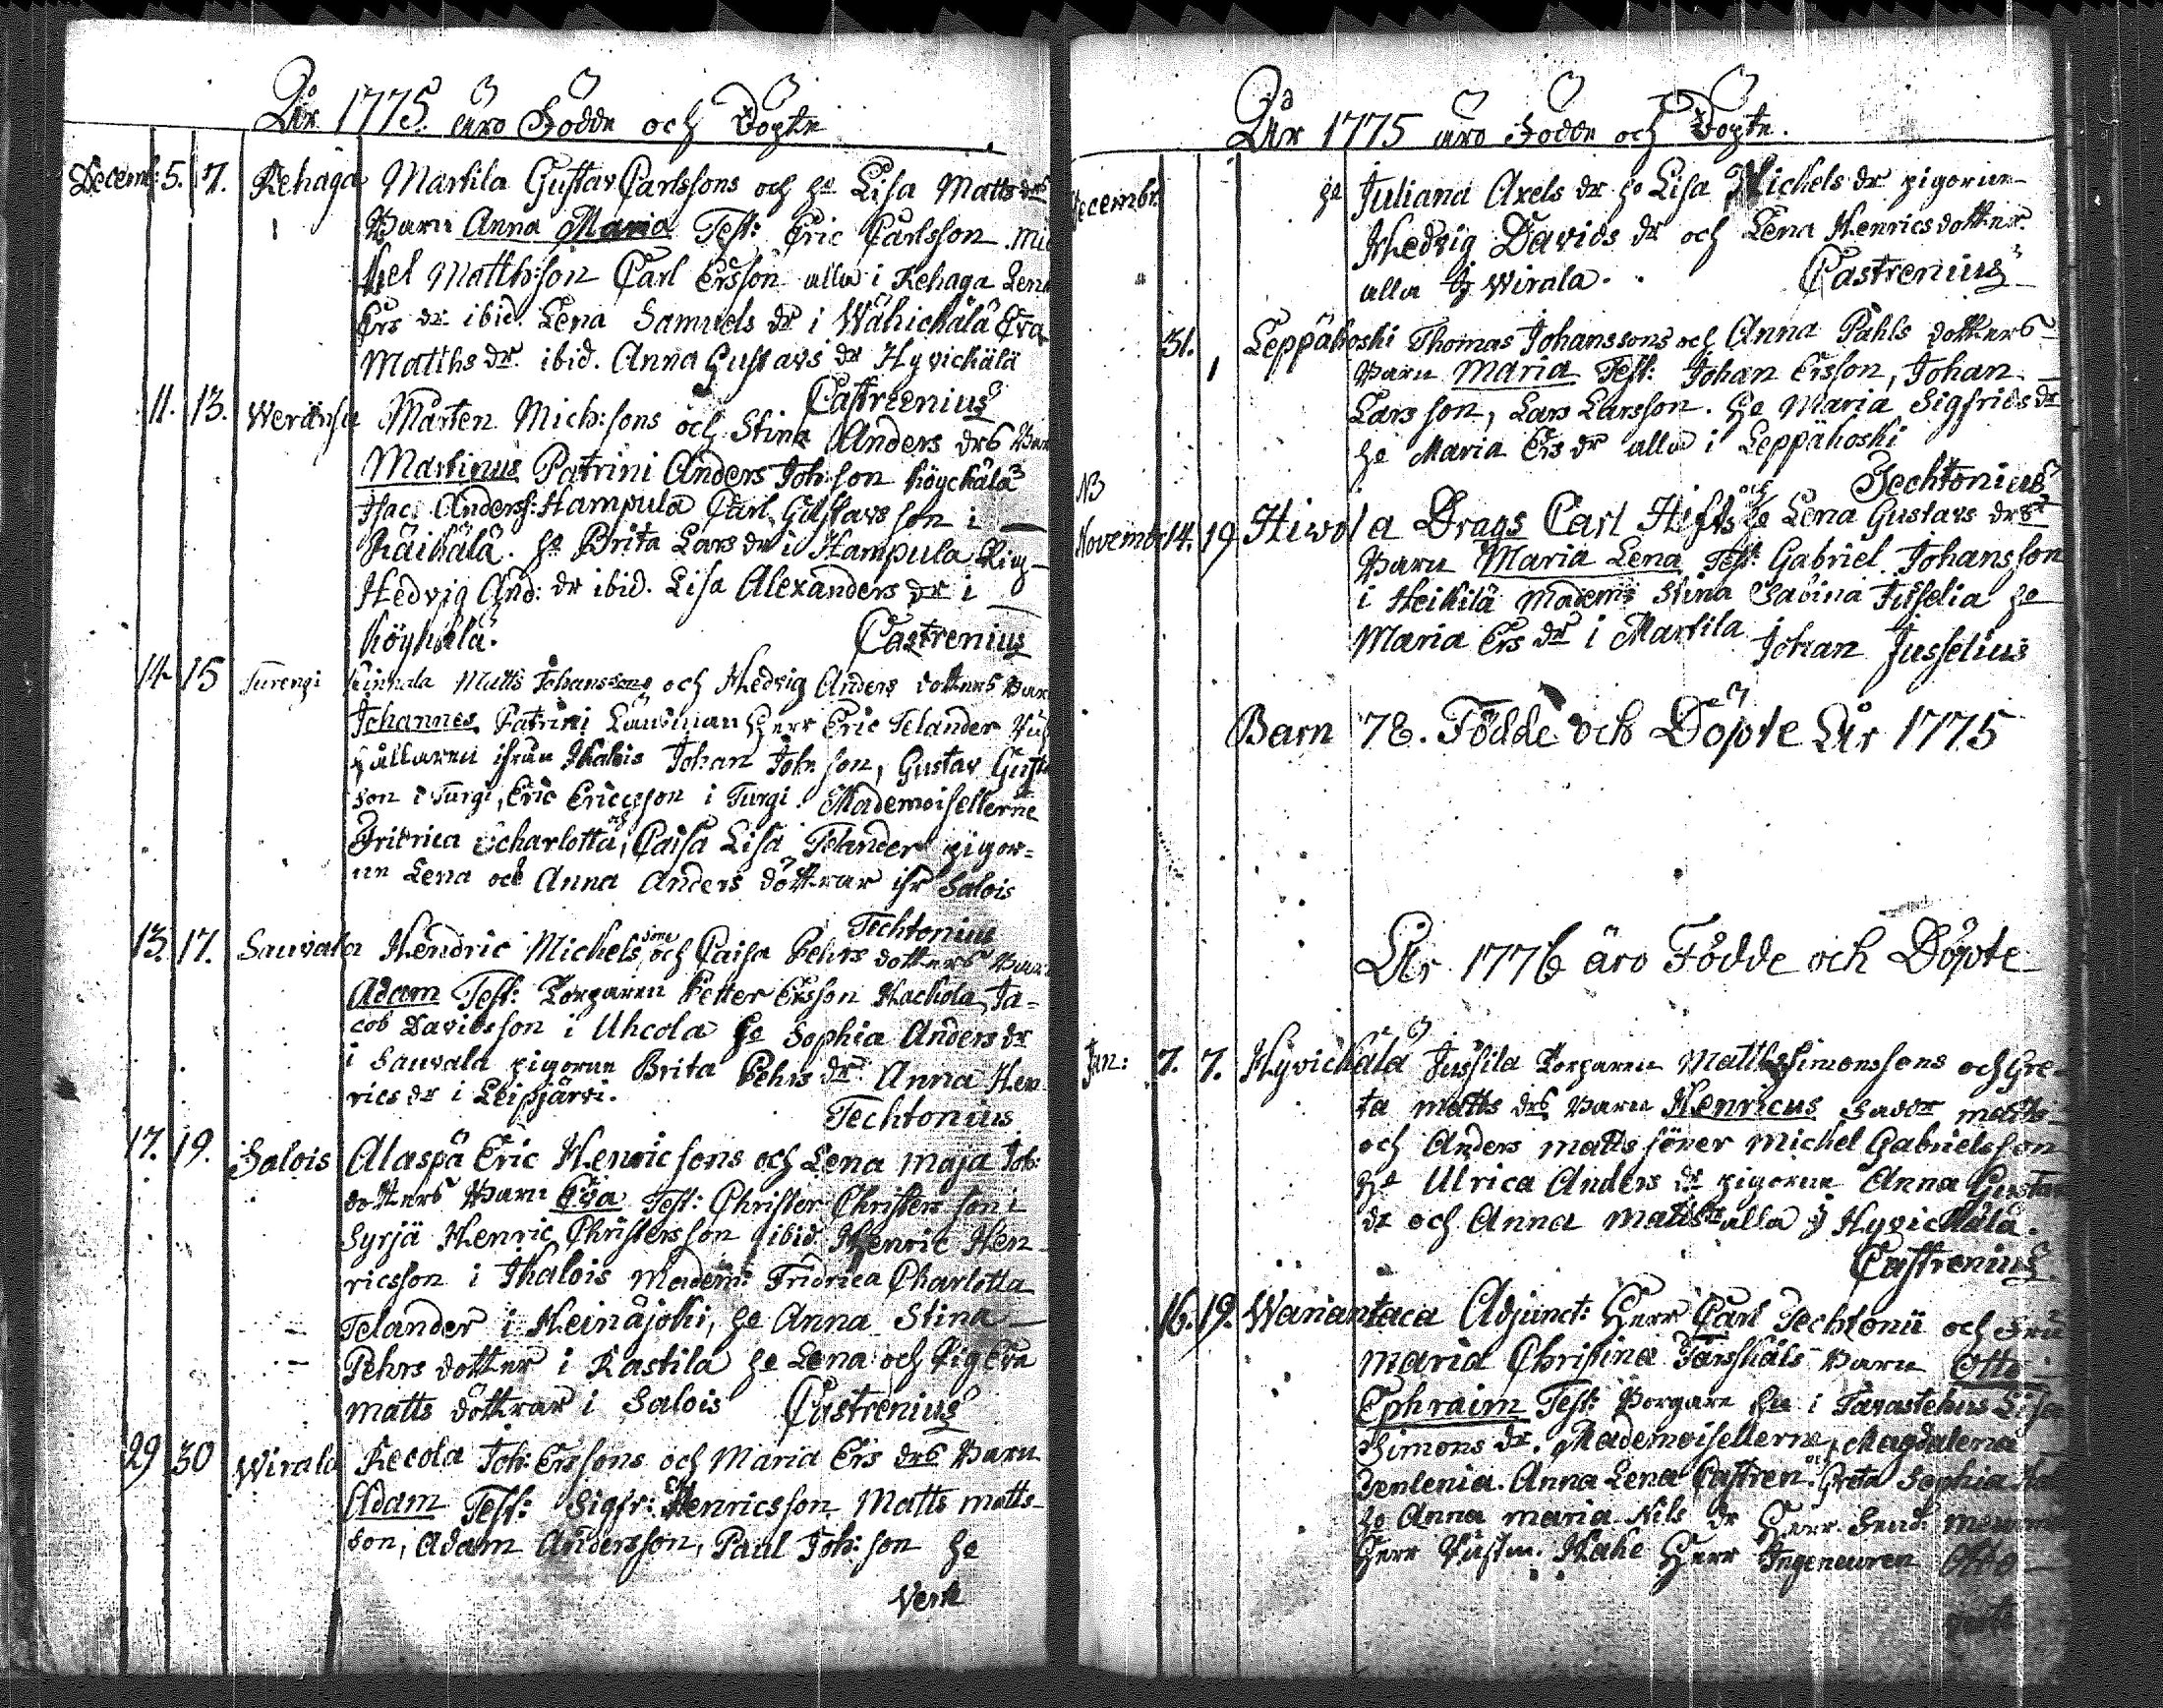 År 1775 äro Födde och Döpte
Decemb: 5. 7. Rehaga Martila Gustav Carlssons och he Lisa Matts drs
Barn Anna Maria Test: Eric Carlsson Mic
kel Matthsson Carl Ersson alla i Rehaga Lena
Ers dr ibid. Lena Samuels dr i Wähickälä Eva
Matths dr ibid. Anna Gustavs dr Hyvickälä
Castrenius
11. 13. Mårten Mich:sons och Stina Anders drs Barn
Martinus Patrini Anders Joh:son Köyckälä
Isac Anderss: Hampula Carl Gustavsson i
Käikälä. he Brita Lars dr i Hampula Pig
Hedvig And: dr ibid. Lisa Alexanders dr i
Köykälä. Castrenius
14 15 Turengi Matts Johanssons och Hedvig Anders dotters Barn
Johannes Patrini Länsman Herr Eric Telander
hållaren ifrån Ihalois Johan Joh:son, Gustav Gust
son i Turgi, Eric Ericsson i Turgi. Mademoisellerne
Fridrica Charlotta, och Caisa Lisa Telander pigor=
ne Lena och Anna Anders döttrar ifr Salois
Techtonius
13. 17. Sauvala Hendric Michels sons och Caisa Pehrs dotters Barn
Adam Test: Torparen Petter Ersson Hackola, Ja=
cob Davidsson i Uhcola he Sophia Anders dr
i Sauvala pigorne Brita Pehrs dr Anna Hen
rics dr i Leipjärvi.
Techtonius
17. 19. Salois Alaspä Eric Henricsons och Lena Maja Joh:
dotters Barn Eva Test: Christer Christersson i
Syrjä Henric Christersson ibid Henric Hen
ricsson i Ihalois Madem: Fridrica Charlotta
Telander i Heinäjoki, he Anna Stina
Pehrs dotter i Rastila he Lena och Pig Eva
Matts döttrar i Salois Castrenius
29 30 Wirala Recola Joh: Erssons och Maria Ers drs Barn
Adam Test: Sigfr: Henricsson Matts Matts
son, Adam Andersson, Paul Joh:son he
Vert
År 1775 äro Födde och Döpte.
Decembr he Juliana Axels dr he Lisa Michels dr pigorne
Hedvig Davids dr och Lena Henricsdotter
alla i Wirala. Castrenius
31. Leppäkoski Thomas Johanssons och Anna Pahls dotters
Barn Maria Test: Johan Ersson, Johan
Larsson, Lars Larsson. he Maria Sigfrids dr
he Maria Ers dr alla i Leppäkoski
Techtonius
NB
Novemb 14. 19 Hiwola Drags Carl Hifts och he Lena Gustavs drs
Barn Maria Lena Test: Gabriel Johansson
i Heikilä Madem: Stina Sabina Jusselia he
Maria Ers dr i Martila Johan Jusselius
Barn 78. Födde och Döpte År 1775
År 1776 äro Födde och Döpte
Jan: 7. 7. Hyvickälä Jussila Torparen Matths Simonssons och Gre
ta Matts drs Barn Henricus Faddr Matts
och Anders Matts söner Michel Gabrielsson
he Ulrica Anders dr pigorne Anna Gustav
dr och Anna Matts dr alla i Hyvickälä.
Castrenius
16. 19. Wanantaca Adjunct: Herr Carl Techtonii och Fru
Maria Christina Barn Otto
Ephraim Test: Borgare hu i Tavastehus Lisa
Simons dr. Mademoisellerne, Magdalena
Anna Lena Castren och Greta Sophia
he Anna Maria Nils dr Herr
Herr Herr Ingeneuren Otto